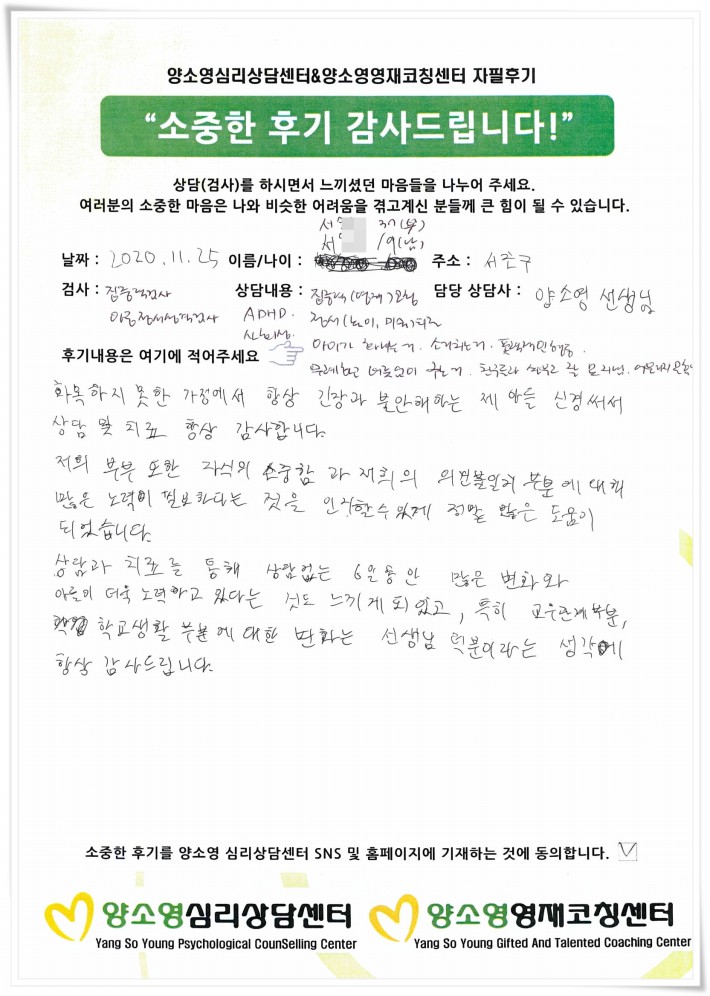 양소영심리상담센터&양소영영재코칭센터 자필후기
“소중한 후기 감사드립니다!”
상담(검사)를 하시면서 느끼셨던 마음들을 나누어 주세요.
여러분의 소중한 마음은 나와 비슷한 어려움을 겪고계신 분들께 큰 힘이 될 수 있습니다.
서 37(부)
서 19(남)
날짜 : 2020.11.25 이름/나이 : 주소 : 서초구
검사 : 집중력검사 상담내용 : 집중력 담당 상담사 : 양소영 선생님
ADHD. 정서(놀이, 미술)치료
후기내용은 여기에 적어주세요
화목하지 못한 가정에서 항상 긴장과 불안해하는 제 아들 신경써서
상담 및 치료 항상 감사합니다.
저희 부부 또한 자식의 소중함과 저희의 의견불일치 부분에 대해
많은 노력이 필요하다는 것을 인지할수있게 정말 많은 도움이
되었습니다.
상담과 치료를 통해 상담없는 6일동안 많은 변화와
아들이 더욱 노력하고 있다는 것도 느끼게 되었고, 특히 교우관계부분,
학교생활 부분에 대한 변화는 선생님 덕분이라는 생각에
항상 감사드립니다.
소중한 후기를 양소영 심리상담센터 SNS 및 홈페이지에 기재하는 것에 동의합니다.
양소영심리상담센터
Yang So Young Psychological CounSelling Center
양소영영재코칭센터
Yang So Young Gifted And Talented Coaching Center